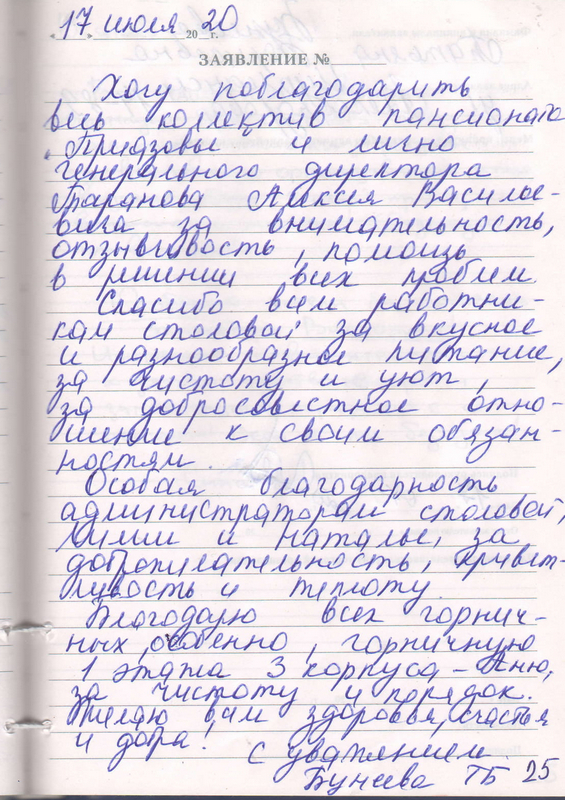 «17» июля 2020 г.
ЗАЯВЛЕНИЕ №
Хочу поблагодарить
весь коллектив пансионата
"Приазовье" и лично
генерального директора
Таранова Алексея Василье-
вича за внимательность,
отзывчивость, помощь
в решении всех проблем.
Спасибо всем работни-
кам столовой за вкусное
и разнообразное питание,
за чистоту и уют,
за добросовестное отно-
шение к своим обязан-
ностям.
Особая благодарность
администраторам столовой,
Лилии и Наталье, за
доброжелательность, привет-
ливость и теплоту
Благодарю всех горнич-
ных, особенно, горничную
1 этажа 3 корпуса – Аню,
за чистоту и порядок.
Желаю вам здоровья, счастья
и добра!
с уважением
Бунеева ТБ 25